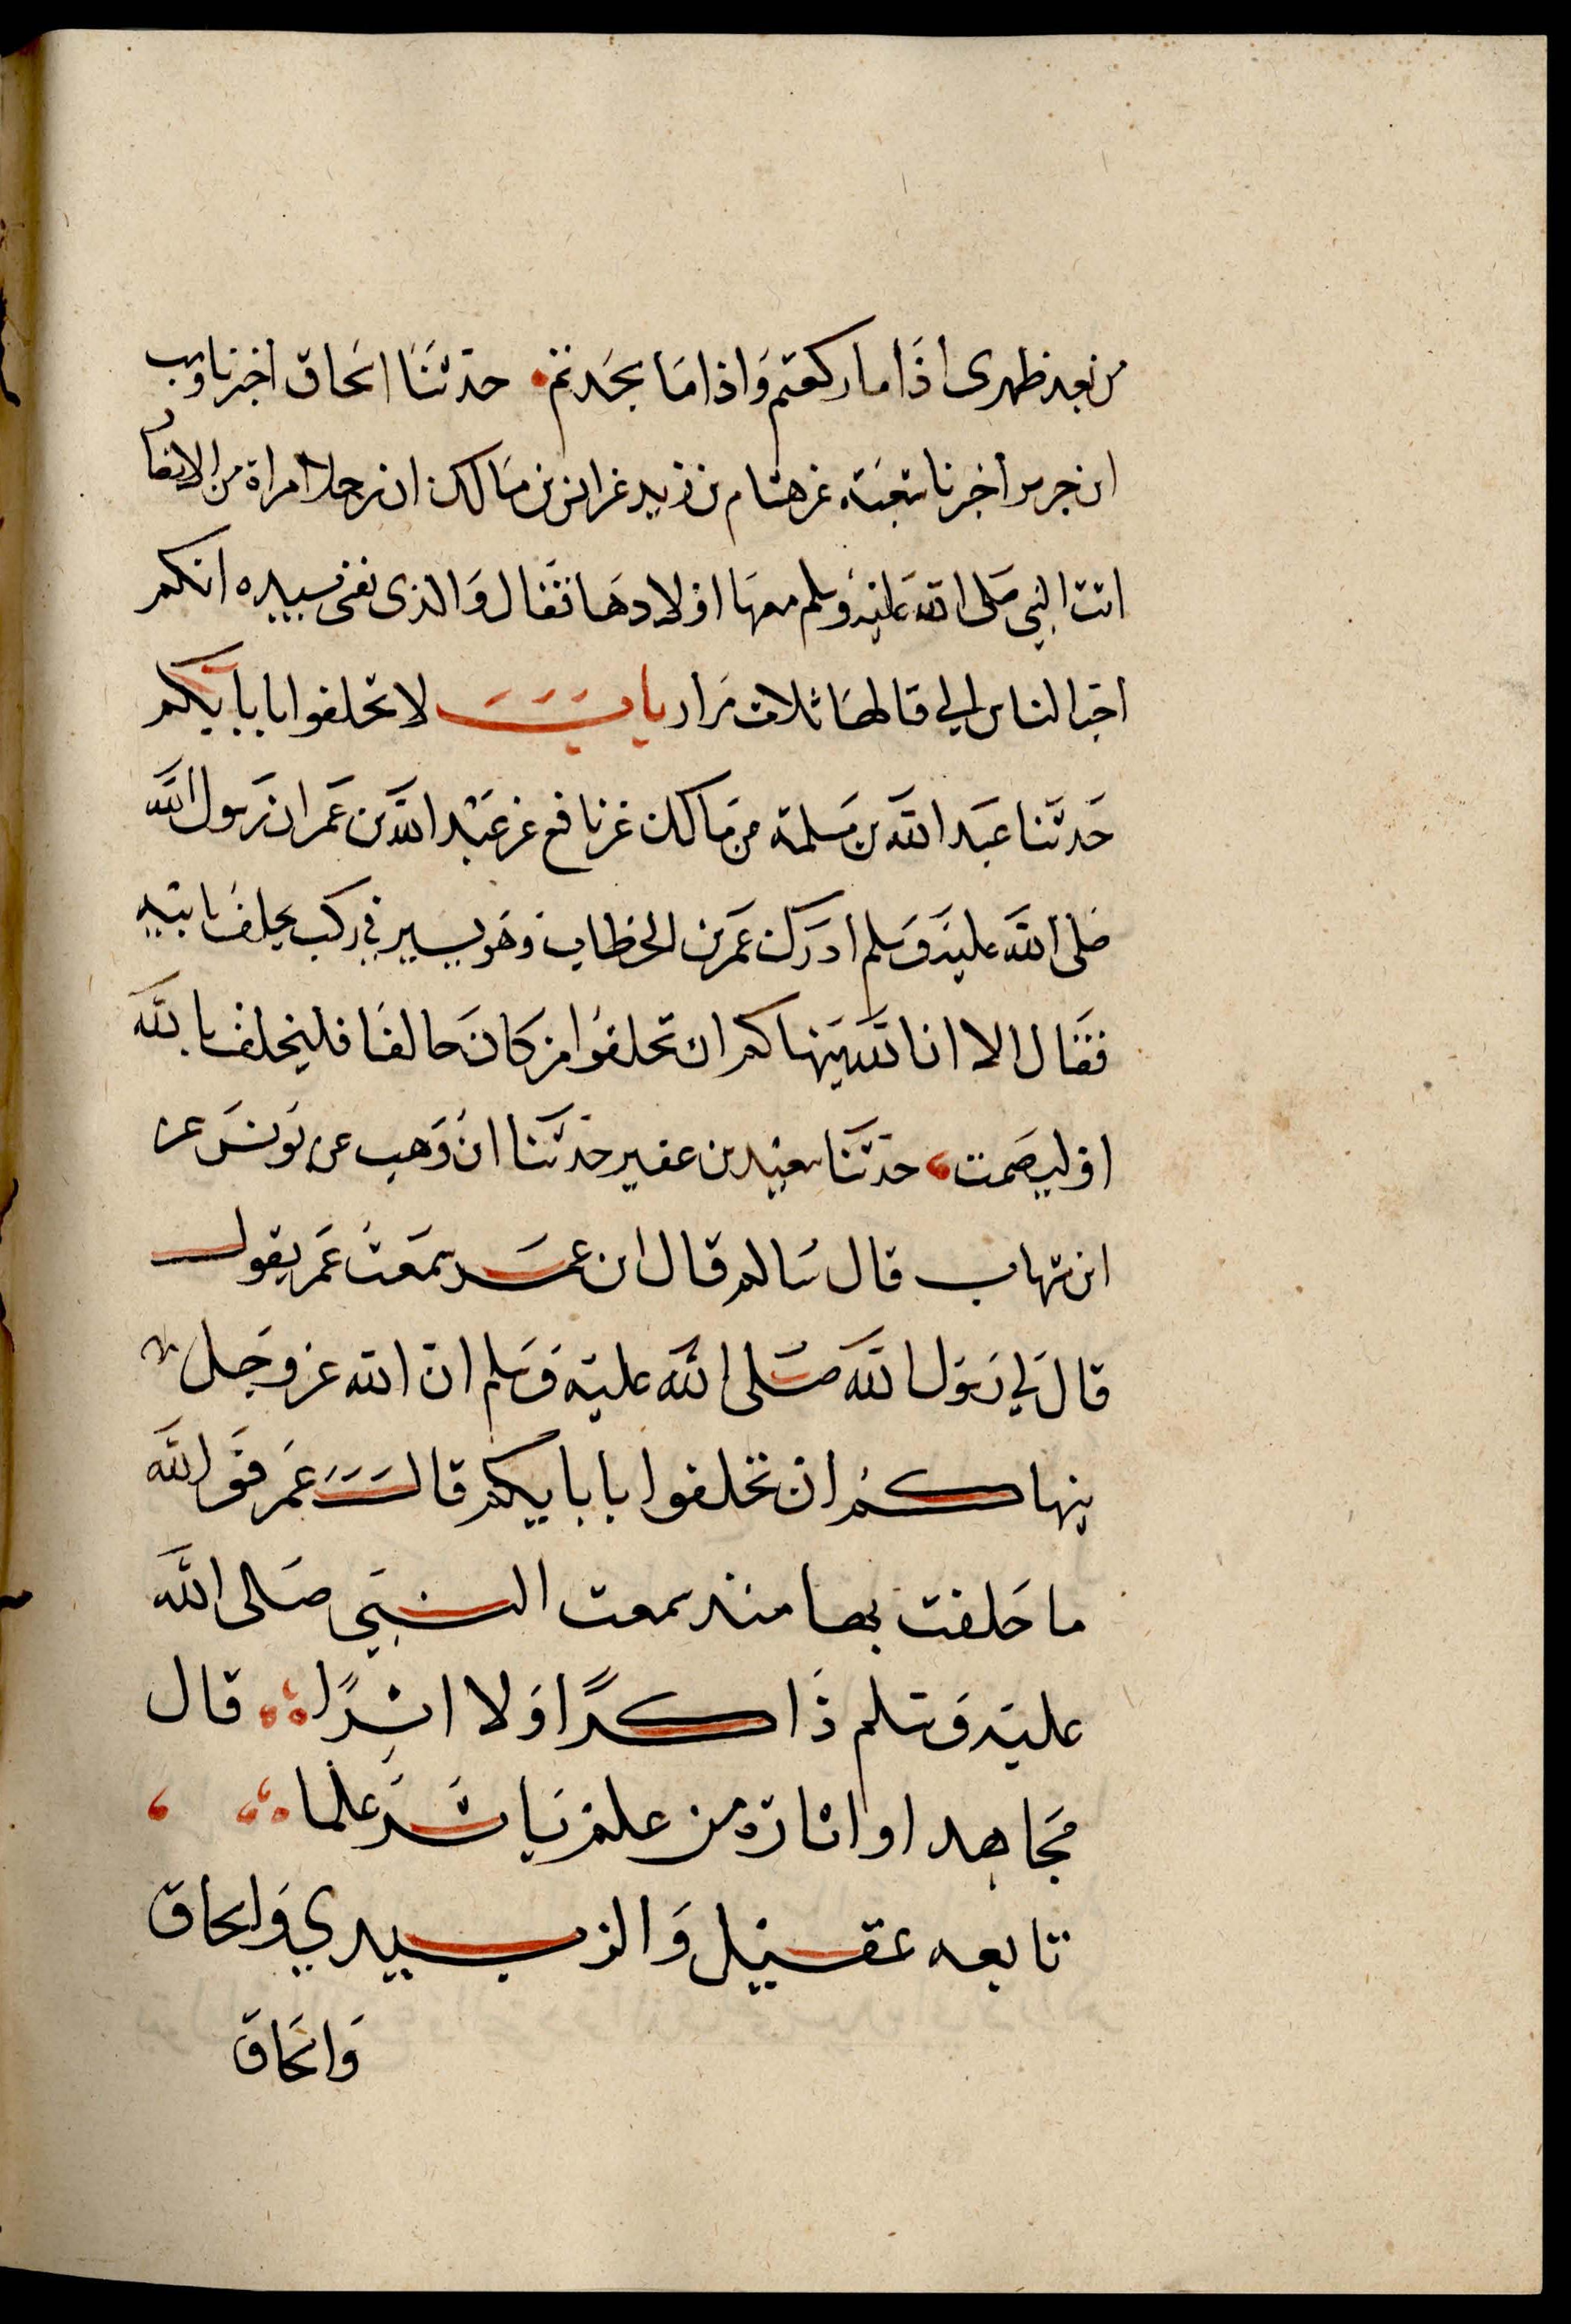 من بعد ظهرى اذا ما ركعتم واذا ما سجدتم حدثنا اسحاق اخبرنا وهب
ابن جرير اخبرنا شعبة عن هشام بن زيد عن انس بن مالك ان رجلا امراة من الانصا
اتت النبي صلى الله عليه وسلم معها اولادها فقال والذى نفسى بيده انكم
احب الناس الي قالها ثلاث مرار باب لا تحلفوا بابايكم
حدثنا عبد الله بن مسلمة عن مالك عن نافع عن عبد الله بن عمر ان رسول الله
صلى الله عليه وسلم ادرك عمر بن الخطاب وهو يسير في ركب يحلف بابيه
فقال الا ان الله ينهاكم ان تحلفوا من كان حالفا فليحلف بالله
او ليصمت حدثنا سعيد بن عفير حدثنا ابن وهب عن يونس عن
ابن شهاب قال سالم قال ابن عمر سمعت عمر يقول
قال لي رسول الله صلى الله عليه وسلم ان الله عز وجل
ينهاكم ان تحلفوا بابايكم قال عمر فوالله
ما حلفت بها منذ سمعت النبي صلى الله
عليه وسلم ذاكرا ولا اثرا قال
مجاهد او اثارة من علم ياثر علما
تابعه عقيل والزبيدي واسحاق
واسحاق